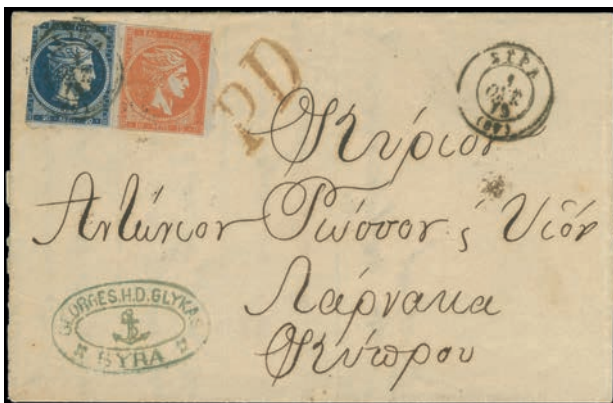 PD
ΣΥΡΑ
1
ΟΚΤ
(67)
Κύριον
Αντώνιον Ρώσσον ς Υιόν
Λάρνακα
Κύπρου
GEORGES.H.D.GLYKAS
SYRA